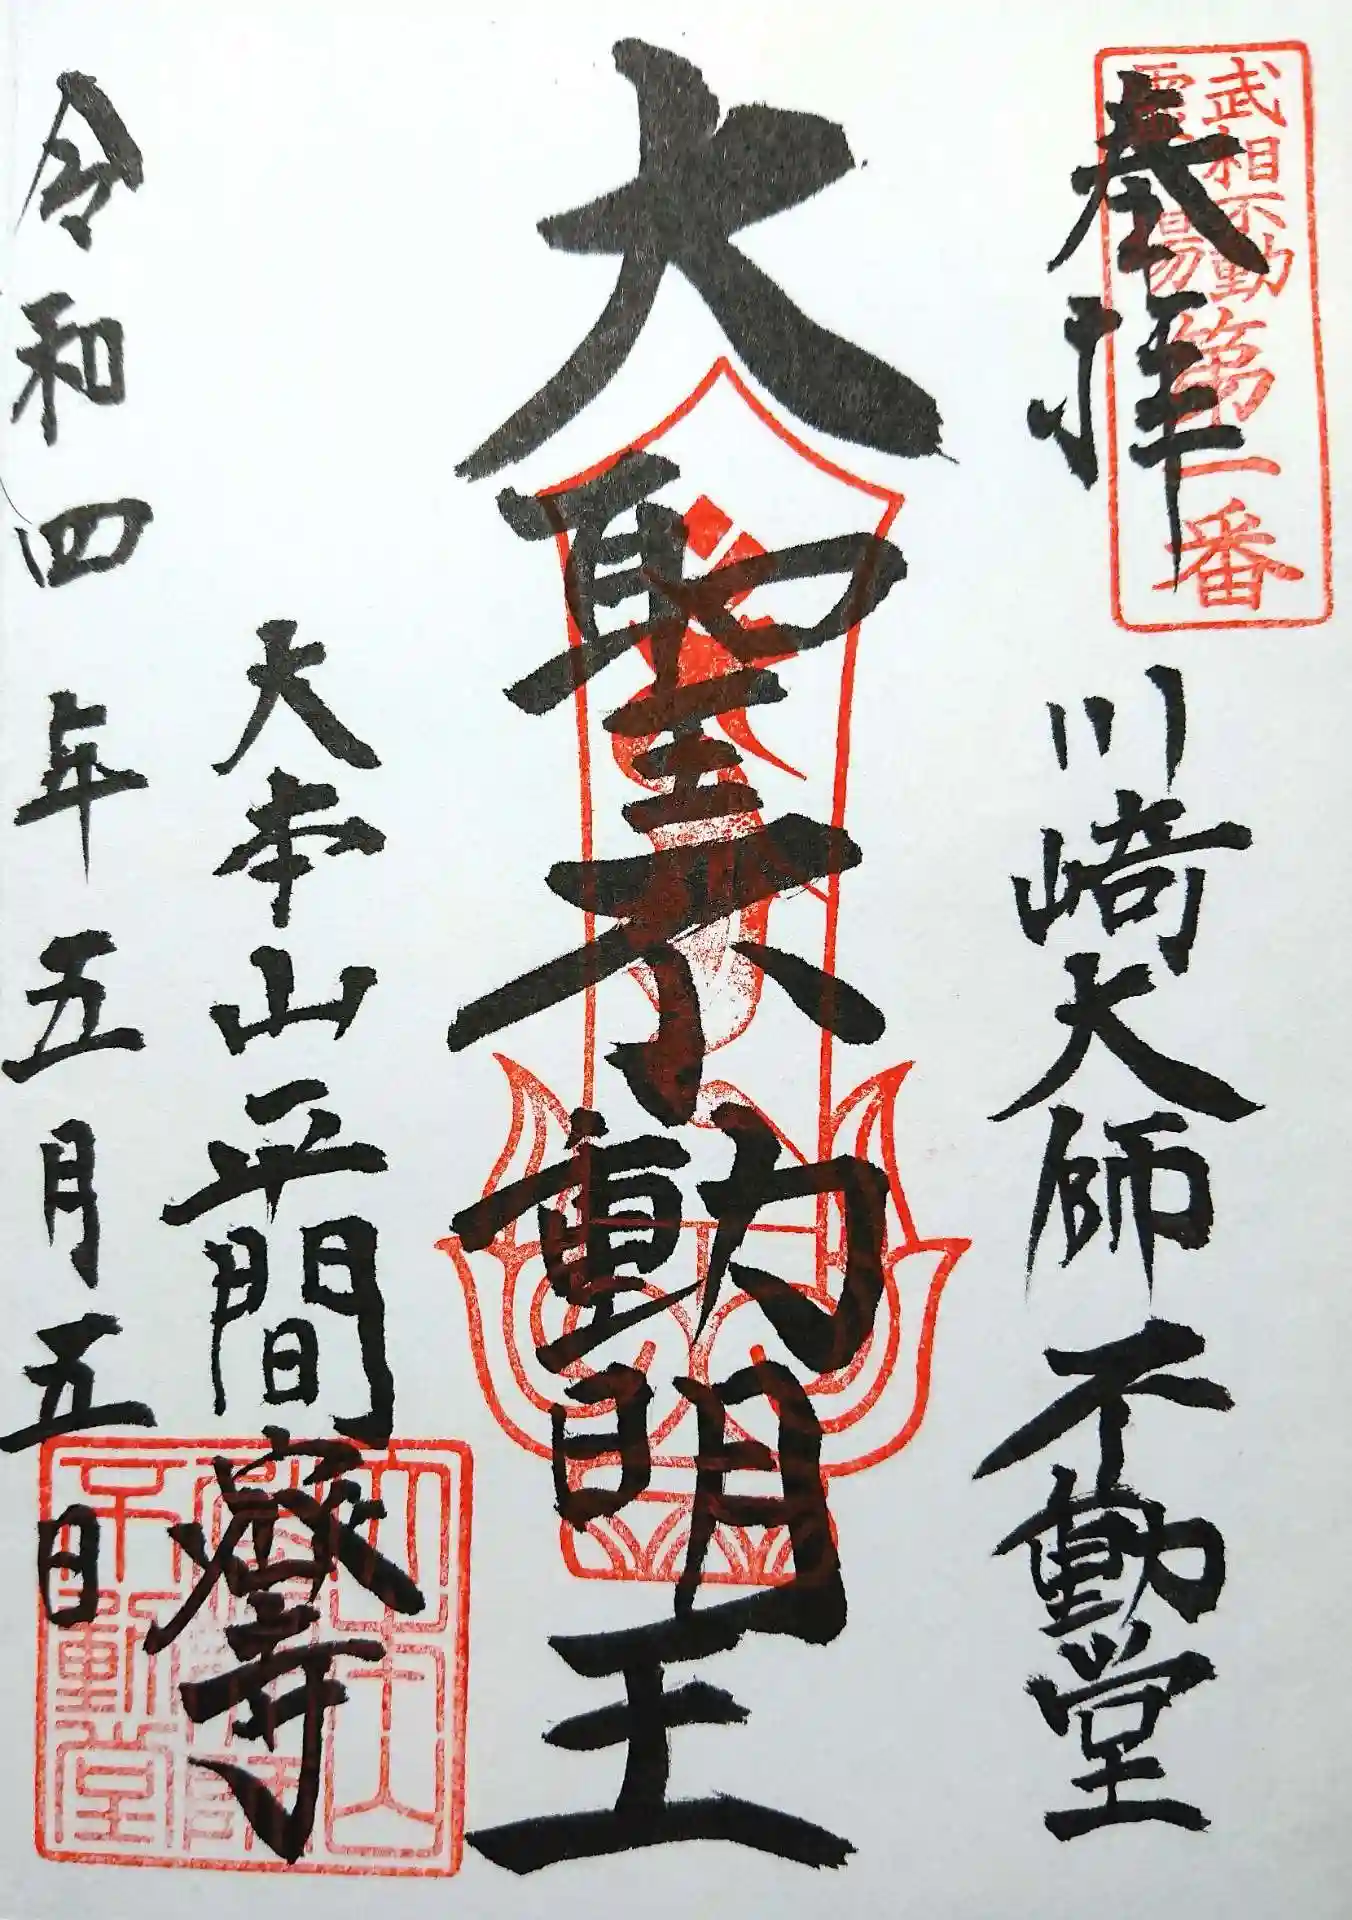 武相不動
霊場
第一番
奉拝
川﨑大師 不動堂
大聖不動明王
大本山平間寺
令和四年五月五日
不動堂